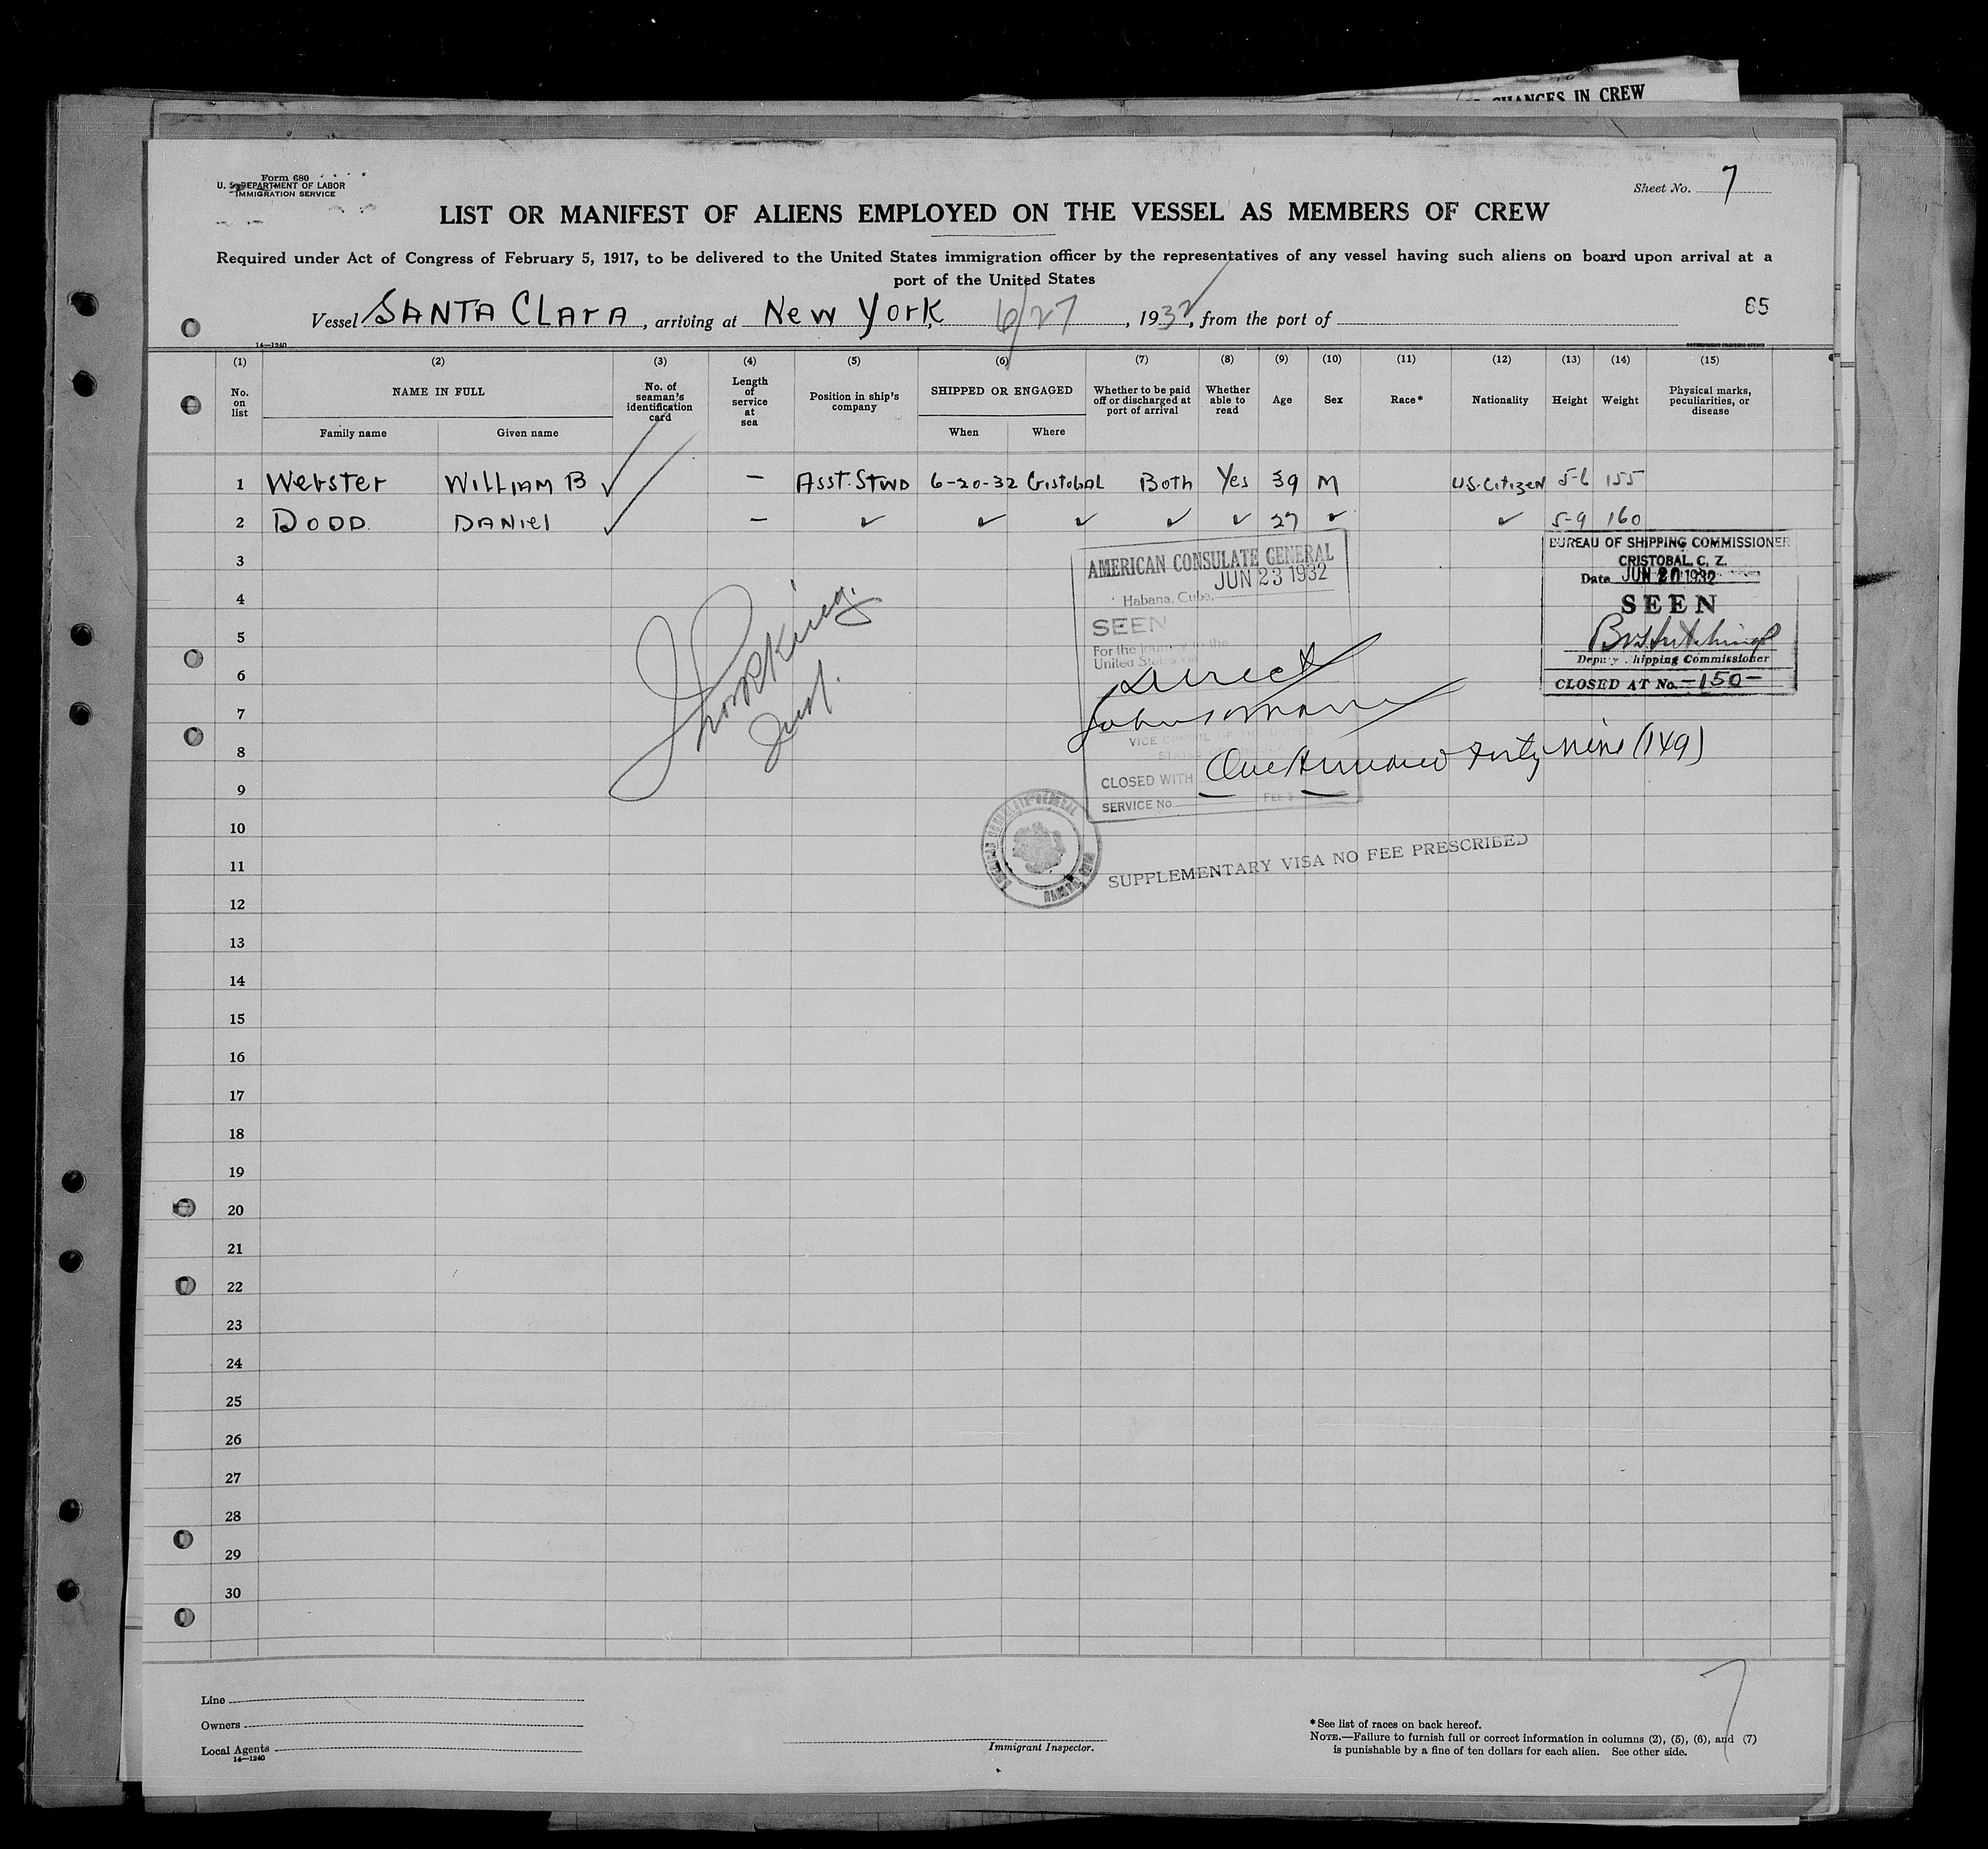 CHANGES IN CREW
Form 680
U. S. DEPARTMENT OF LABOR
IMMIGRATION SERVICE
Sheet No. 7
LIST OR MANIFEST OF ALIENS EMPLOYED ON THE VESSEL AS MEMBERS OF CREW
Required under Act of Congress of February 5, 1917, to be delivered to the United States immigration officer by the representatives of any vessel having such aliens on board upon arrival at a
port of the United States
Vessel SANTA CLARA, arriving at New York, 6/27, 1932, from the port of
85
14—1240
(1) (2) (3) (4) (5) (6) (7) (8) (9) (10) (11) (12) (13) (14) (15)
No. on list
NAME IN FULL
Family name
Given name
No. of seaman's identification card
Length of service at sea
Position in ship's company
SHIPPED OR ENGAGED
When
Where
Whether to be paid off or discharged at port of arrival
Whether able to read
Age
Sex
Race*
Nationality
Height
Weight
Physical marks, peculiarities, or disease
1 Webster William B ✓ — Asst. Stwd 6-20-32 Cristobal Both Yes 39 M U.S. Citizen 5-6 155
2 DODD DANIEL ✓ — ✓ ✓ ✓ ✓ ✓ 27 ✓ ✓ 5-9 160
3
4
5
6
7
8
9
10
11
12
13
14
15
16
17
18
19
20
21
22
23
24
25
26
27
28
29
30
AMERICAN CONSULATE GENERAL
JUN 23 1932
Habana, Cuba,
SEEN
For the journey to the
United States via
Direct
VICE CONSUL OF THE UNITED
STATES OF AMERICA
CLOSED WITH One Hundred Forty nine (149)
SERVICE No. FEE $
SUPPLEMENTARY VISA NO FEE PRESCRIBED
BUREAU OF SHIPPING COMMISSIONER
CRISTOBAL, C. Z.
Date JUN 20 1932
SEEN
Deputy Shipping Commissioner
CLOSED AT No. -150-
Line
Owners
Local Agents
14—1240
Immigrant Inspector.
*See list of races on back hereof.
NOTE.—Failure to furnish full or correct information in columns (2), (5), (6), and (7)
is punishable by a fine of ten dollars for each alien. See other side.
7